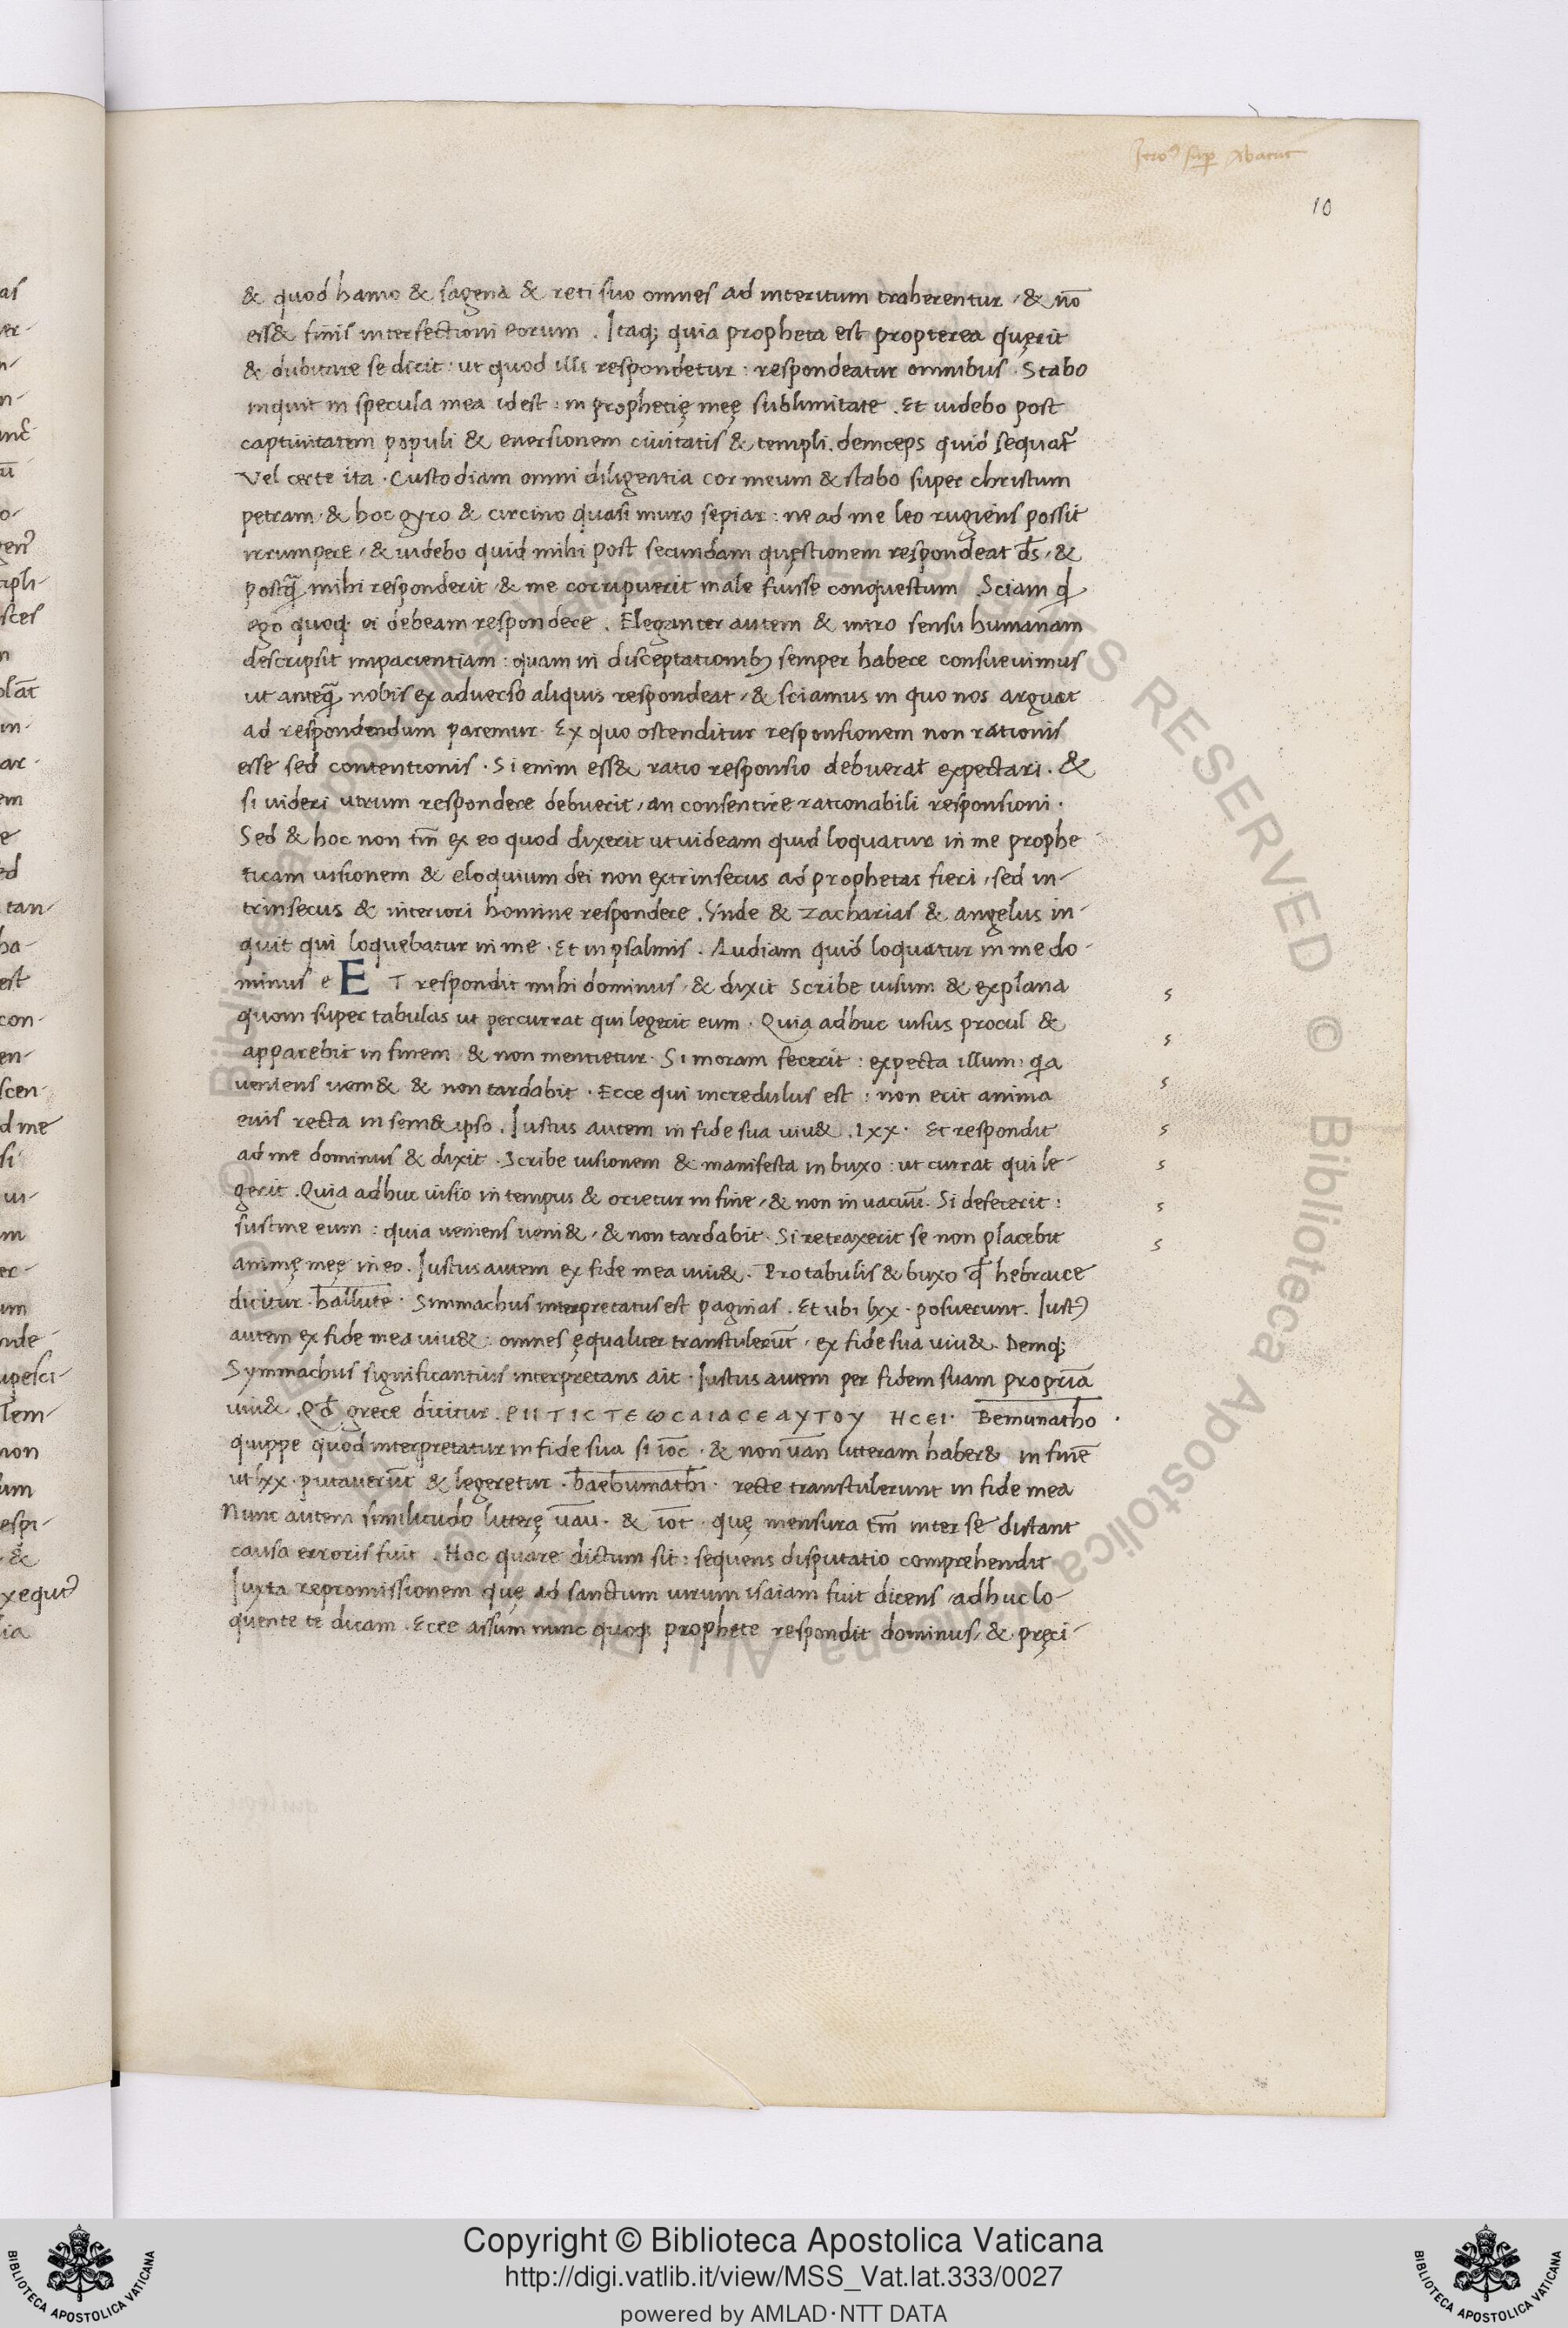 Iero⁹ sup Abacuc
10
& quod hamo & sagena & reti suo omnes ad interitum traherentur, & nō
ess& finis interfectioni eorum . Itaq; quia propheta est propterea quęrit
& dubitare se dicit : ut quod illi respondetur : respondeatur omnibus . Stabo
inquit in specula mea idest : in prophetię meę sublimitate . Et uidebo post
captiuitatem populi & euersionem ciuitatis & templi . deinceps quid sequat᷑
Vel certe ita . Custodiam omni diligentia cor meum & stabo super christum
petram . & hoc gyro & circino quasi muro sepiar : ne ad me leo rugiens possit
irrumpere , & uidebo quid mihi post secundam quęstionem respondeat d̄s , &
postq̄ mihi responderit , & me corripuerit male fuisse conquestum . Sciam qd
ego quoq; ei debeam respondere . Eleganter autem & intro sensu humanam
descripsit impacientiam : quam in disceptationib; semper habere consueuimus
ut anteq̄ nobis ex aduerso aliquis respondeat , & sciamus in quo nos arguat
ad respondendum paremur . Ex quo ostenditur responsionem non rationis
esse sed contentionis . Si enim ess& ratio responsio debuerat expectari . &
si uideri utrum respondere debuerit , an consentire rationabili responsioni .
Sed & hoc non tm̄ ex eo quod dixerit ut uideam quid loquatur in me prophe
ticam uisionem & eloquium dei non extrinsecus ad prophetas fieri , sed in-
trinsecus & interiori homine respondere . Vnde & zacharias & angelus in-
quit qui loquebatur in me . Et in psalmis . Audiam quid loquatur in me do-
minus e ET respondit mihi dominus , & dixit Scribe uisum & explana
quom super tabulas ut percurrat qui legerit eum . Quia adhuc uisus procul &
apparebit in finem , & non mentietur . Si moram fecerit : expecta illum : qa
ueniens ueni& & non tardabit . Ecce qui incredulus est : non erit anima
euis recta in sem& ipso . Iustus autem in fide sua uiu& . lxx . Et respondit
ad me dominus & dixit . Scribe uisionem & manifesta in buxo : ut currat qui le-
gerit . Quia adhuc uisio in tempus & orietur in fine , & non in uacuū . Si defecerit :
sustine eum : quia ueniens ueni& , & non tardabit . Si retraxerit se non placebit
animę meę in eo . Iustus autem ex fide mea uiu& . Pro tabulis & buxo qd̄ hebraice
dicitur . hallute . Simmachus interpretatus est paginas . Et ubi lxx . posuerunt . Iust⁹
autem ex fide mea uiu& : omnes ęqualiter transtulerūt , ex fide sua uiu& . Demq;
Symmachus significantius interpretans ait . Iustus autem per fidem suam propriā
uiu& . Qd̄ grece dicitur . ΡΙΙΤΙCΤΕωCΑΙΑCΕΑΥΤΟΥ ΗCΕΙ . Bemunatho .
quippe quod interpretatur in fide sua si ioc . & non uan litteram haber& in finē
ut lxx . putauerūt & legeretur . baebumathi . recte transtulerunt in fide mea
Nunc autem similitudo litterę uau . & iot . quę mensura tm̄ inter se distant
causa erroris fuit . Hoc quare dictum sit : sequens disputatio comprehendit
Iuxta repromissionem quę ad sanctum uirum isaiam fuit dicens , adhuc lo-
quente te dicam . Ecce assum nunc quoq; prophete respondit dominus , & pręci-
Copyright © Biblioteca Apostolica Vaticana
http://digi.vatlib.it/view/MSS_Vat.lat.333/0027
powered by AMLAD·NTT DATA
BIBLIOTECA APOSTOLICA VATICANA
BIBLIOTECA APOSTOLICA VATICANA